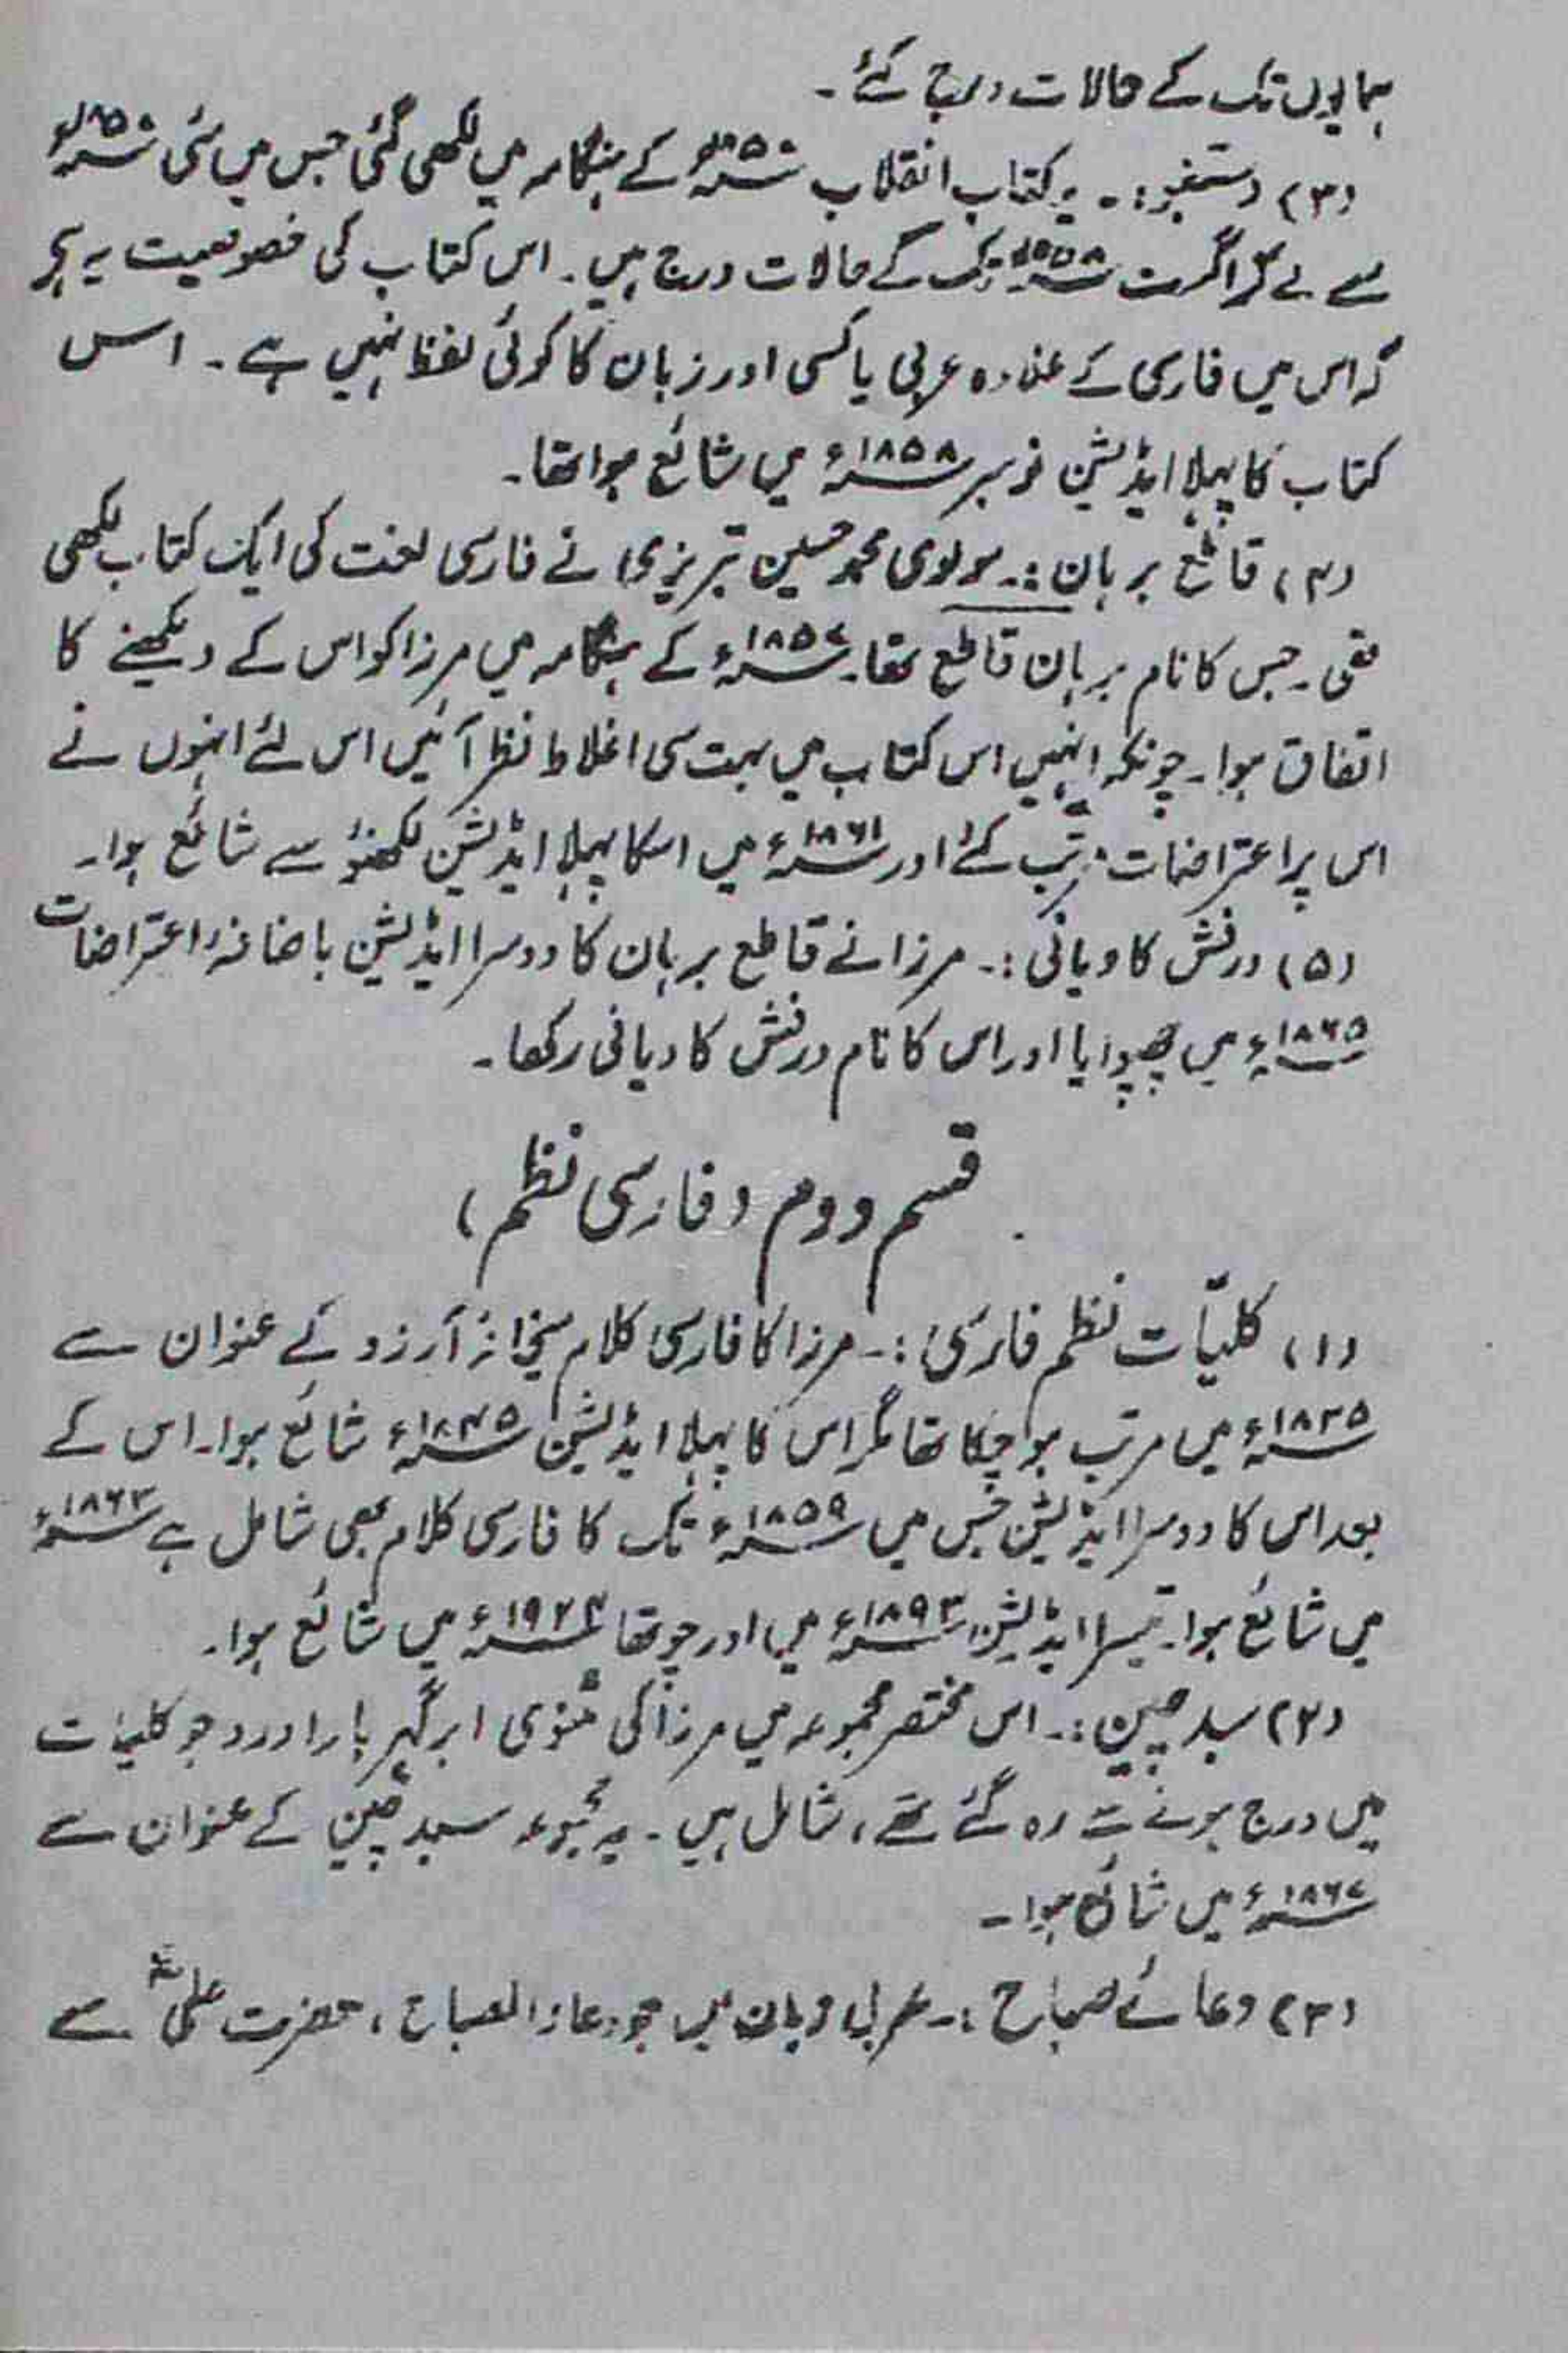 ہمایوں تک کے حالات درج کئے۔
(۳) دستنبو:۔ یہ کتاب انقلاب ۱۸۵۷ء کے ہنگامہ میں لکھی گئی جس میں مئی ۱۸۵۷ء
سے لے کر اگست ۱۸۵۸ء تک کے حالات درج ہیں۔ اس کتاب کی خصوصیت یہ ہے
کہ اس میں فارسی کے علاوہ عربی یا کسی اور زبان کا کوئی لفظ نہیں ہے۔ اس
کتاب کا پہلا ایڈیشن نومبر ۱۸۵۸ء میں شائع ہوا تھا۔
(۴) قاطع برہان:۔ مولوی محمد حسین تبریزی نے فارسی لغت کی ایک کتاب لکھی
تھی۔ جس کا نام برہان قاطع تھا۔ ۱۸۵۷ء کے ہنگامہ میں مرزا کو اس کے دیکھنے کا
اتفاق ہوا۔ چونکہ انہیں اس کتاب میں بہت سی اغلاط نظر آئیں اس لئے انہوں نے
اس پر اعتراضات مرتب کئے اور ۱۸۶۱ء میں اسکا پہلا ایڈیشن لکھنؤ سے شائع ہوا۔
(۵) درفش کاویانی:۔ مرزا نے قاطع برہان کا دوسرا ایڈیشن باضافۂ اعتراضات
۱۸۶۵ء میں چھپوایا اور اس کا نام درفش کاویانی رکھا۔
قسم دوم (فارسی نظم)
(۱) کلیّات نظم فارسی:۔ مرزا کا فارسی کلام میخانۂ آرزو کے عنوان سے
۱۸۳۵ء میں مرتب ہو چکا تھا مگر اس کا پہلا ایڈیشن ۱۸۴۵ء شائع ہوا۔ اس کے
بعد اس کا دوسرا ایڈیشن جس میں ۱۸۵۹ء تک کا فارسی کلام بھی شامل ہے ۱۸۶۳ء
میں شائع ہوا۔ تیسرا ایڈیشن ۱۸۹۳ء میں اور چوتھا ۱۹۲۴ء میں شائع ہوا۔
(۲) سبد چین:۔ اس مختصر مجموعہ میں مرزا کی مثنوی ابر گہر بار اور وہ جو کلیات
میں درج ہونے سے رہ گئے تھے، شامل ہیں۔ یہ مجموعہ سبد چین کے عنوان سے
۱۸۶۷ء میں شائع ہوا۔
(۳) دعائے صباح:۔ عربی زبان میں جو دعاء الصباح، حضرت علیؓ سے